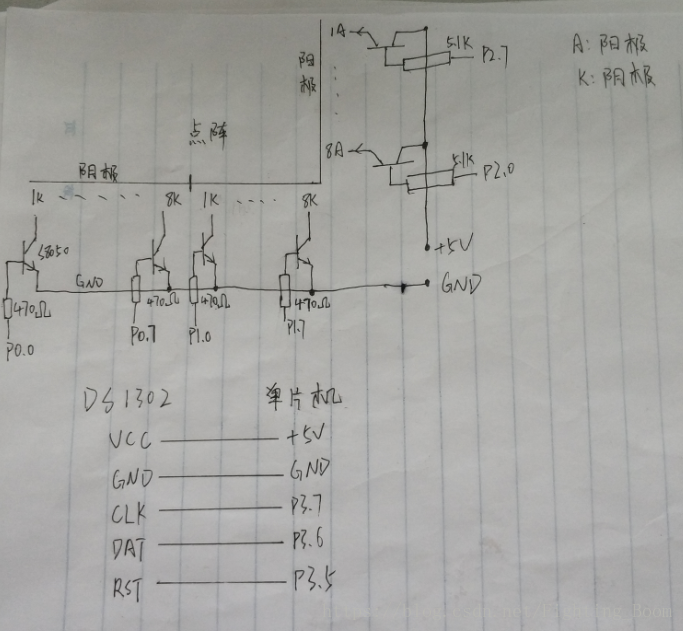 1A
5.1K
P2.7
A: 阳极
K: 阴极
阳
极
点阵
8A
5.1K
P2.0
阴极
1K
8K
1K
8K
S8050
+5V
GND
GND
470Ω
470Ω
470Ω
470Ω
P0.0
P0.7
P1.0
P1.7
DS1302 单片机
VCC +5V
GND GND
CLK P3.7
DAT P3.6
RST P3.5